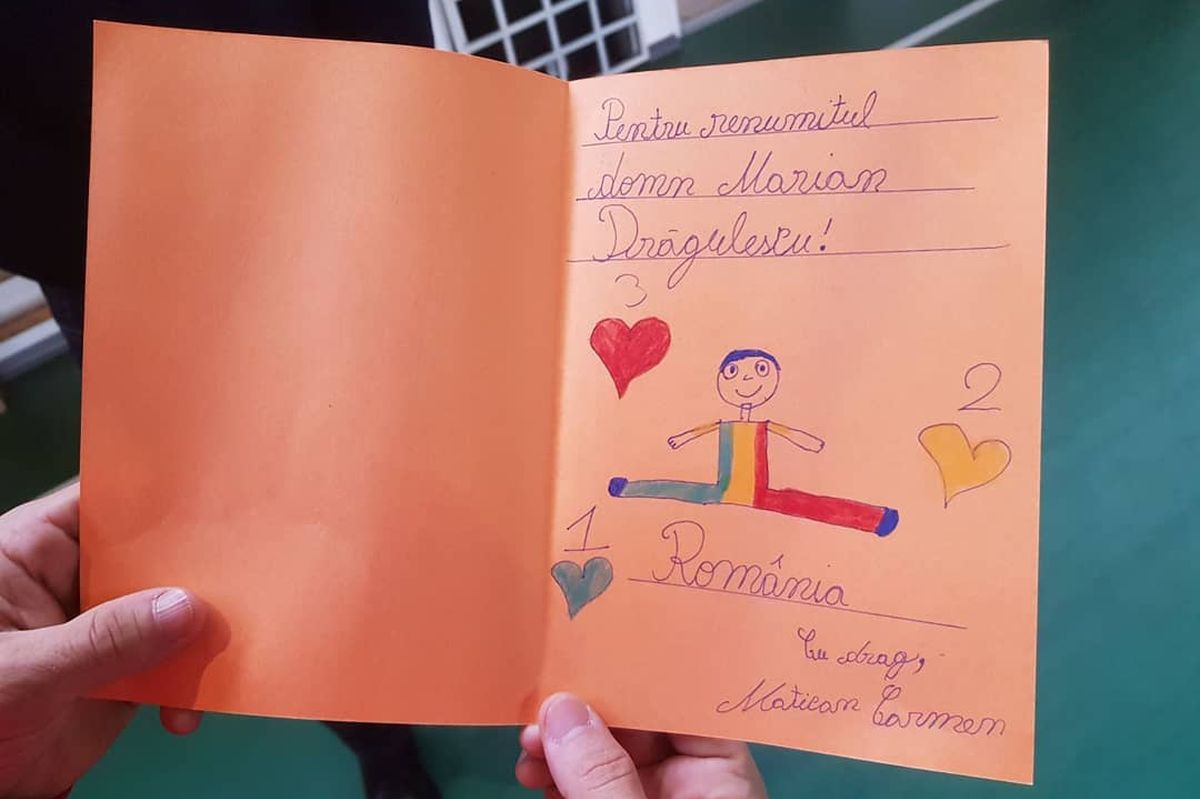 Pentru renumitul
domn Marian
Drăgulescu!
3
2
1
România
Cu drag,
Matican Carmen